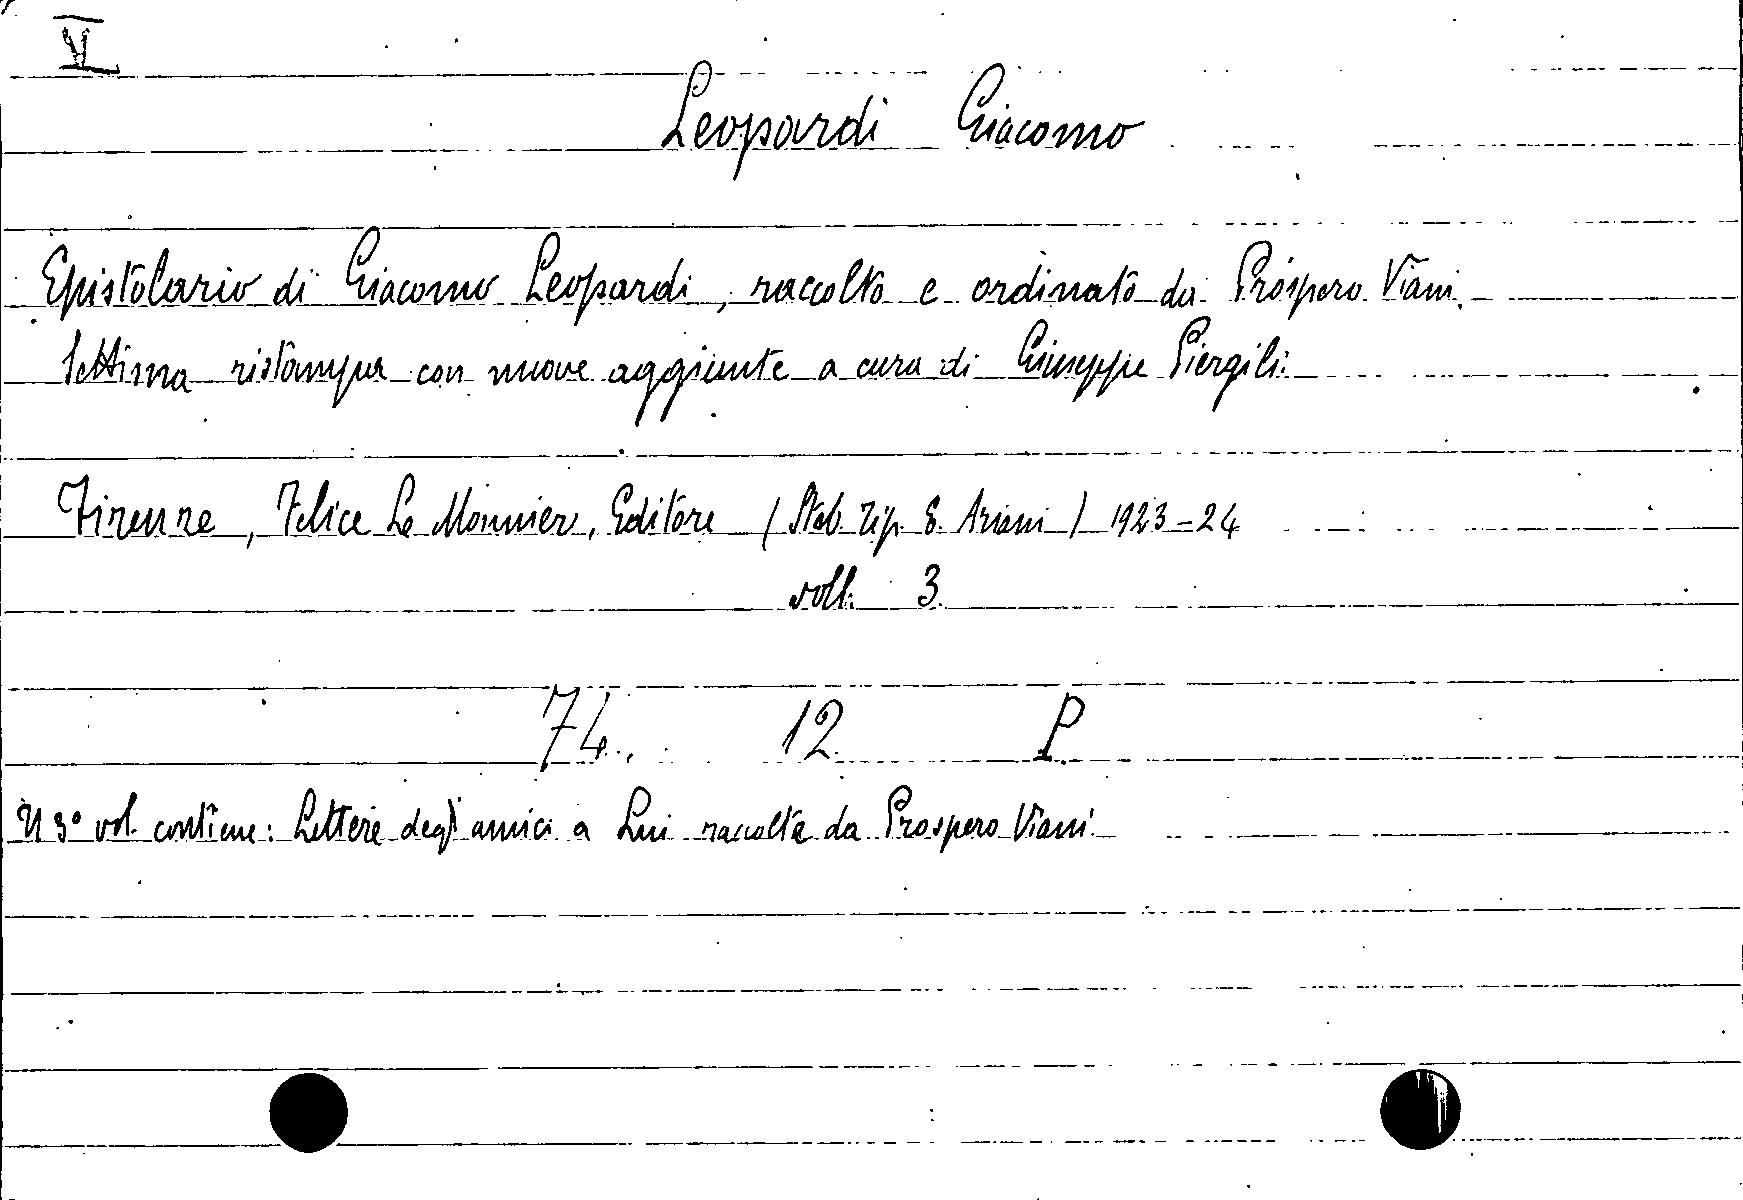 V
Leopardi Giacomo
Epistolario di Giacomo Leopardi, raccolto e ordinato da Prospero Viani.
Settima ristampa con nuove aggiunte a cura di Giuseppe Piergili.
Firenze, Felice Le Monnier, Editore (Stab. Tip. E. Ariani) 1923-24
voll. 3
74. 12 P.
Il 3° vol. contiene: Lettere degli amici a Lui raccolte da Prospero Viani.